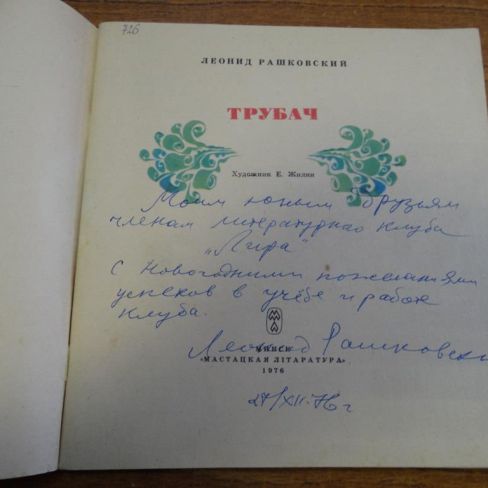 726
ЛЕОНИД РАШКОВСКИЙ
ТРУБАЧ
Художник Е. Жилин
Моим юным друзьям
членам литературного клуба
"Лира"
с Новогодними пожеланиями
успехов в учёбе и работе
клуба.
Леонид Рашковский
МИНСК
«МАСТАЦКАЯ ЛІТАРАТУРА»
1976
27/XII-76 г